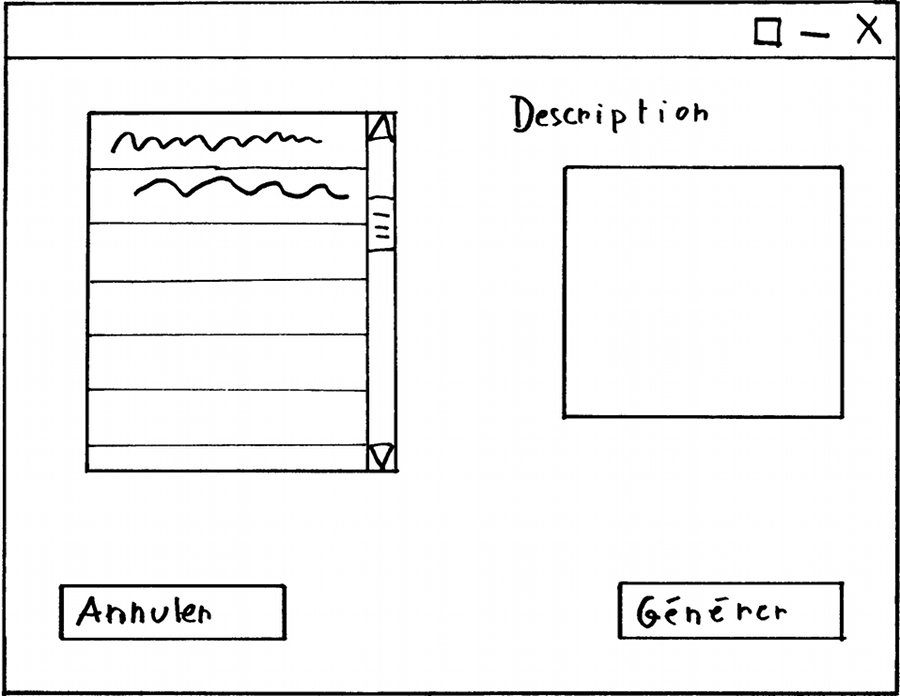 Description
Annuler
Générer